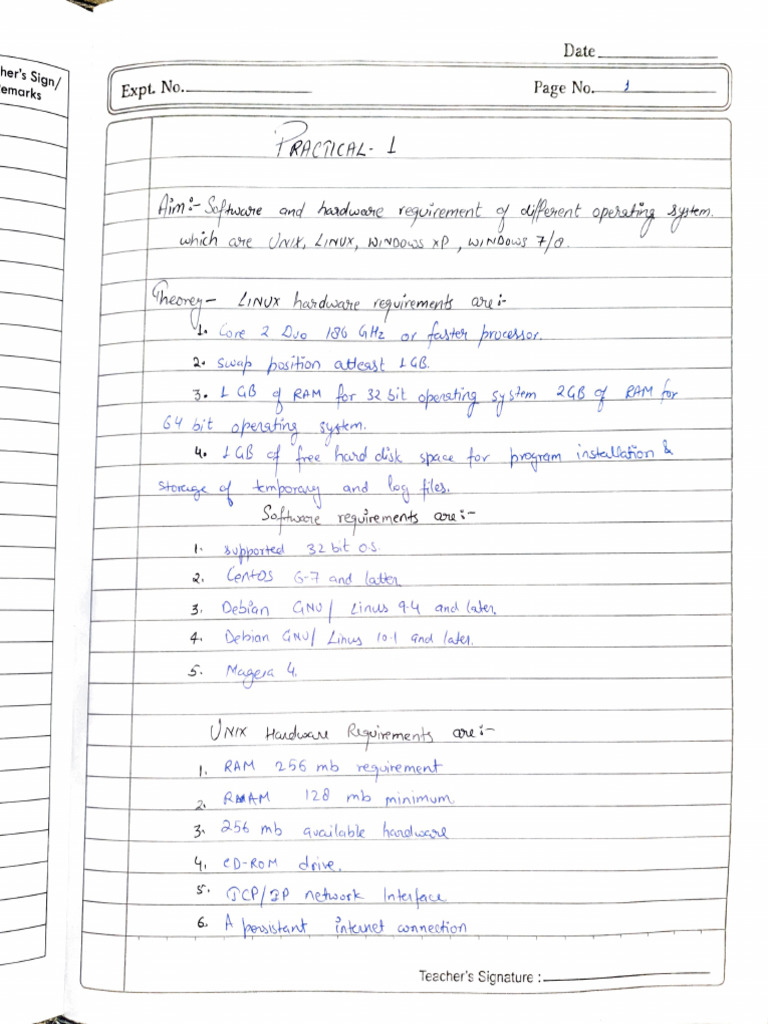 her's Sign/
emarks
Date
Expt. No.
Page No. 1
PRACTICAL- 1
Aim:- Software and hardware requirement of different operating system.
which are UNIX, LINUX, WINDOWS XP, WINDOWS 7/8.
Theorey- LINUX hardware requirements are:-
1. Core 2 Duo 186 GHz or faster processor.
2. Swap position atleast 1GB.
3. 1 GB of RAM for 32 bit operating system 2GB of RAM for
64 bit operating system.
4. 1GB of free hard disk space for program installation &
storage of temporary and log files.
Software requirements are:-
1. supported 32 bit o.s.
2. CentOS 6-7 and latter
3. Debian GNU/ Linus 9.4 and later.
4. Debian GNU/ Linus 10.1 and later.
5. Mageia 4.
UNIX Hardware Requirements are:-
1. RAM 256 mb requirement
2. RAM 128 mb minimum
3. 256 mb available hardware
4. CD-ROM drive.
5. TCP/IP network Interface
6. A persistant internet connection
Teacher's Signature :